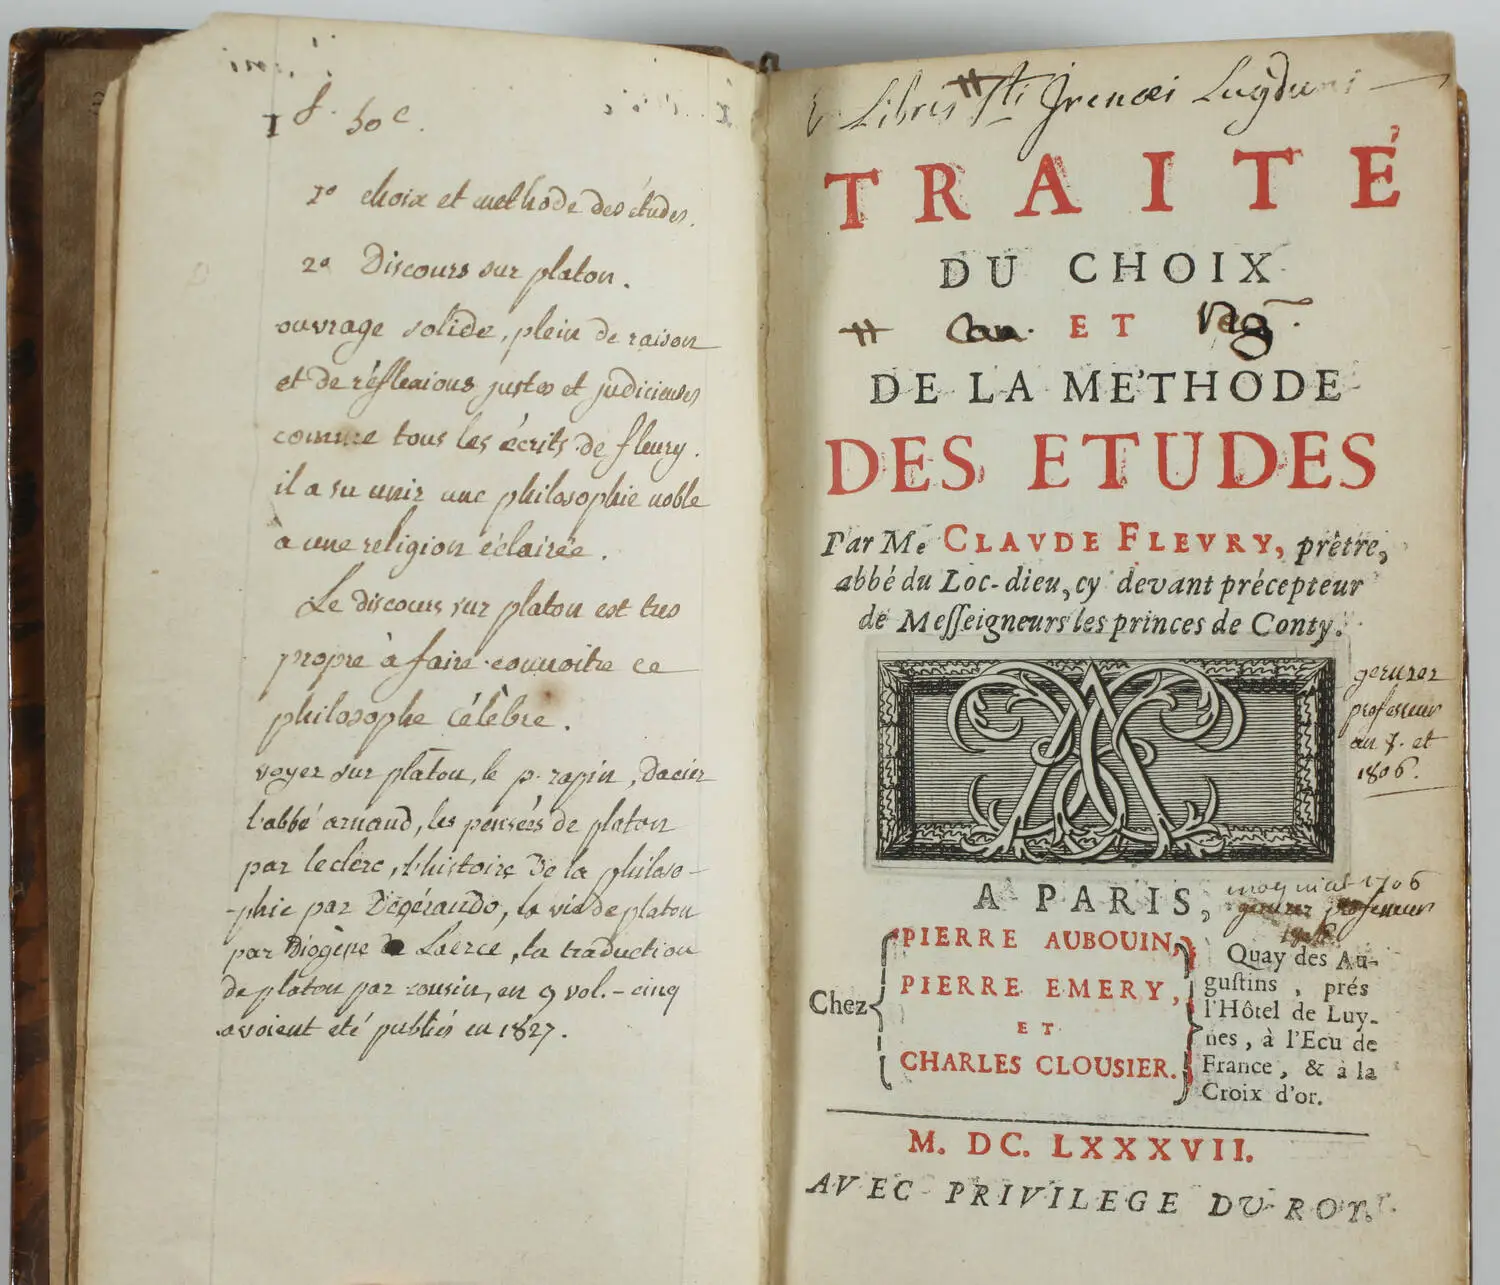 1 f. 50c.
1º choix et methode des études.
2º Discours sur platon.
ouvrage solide, plein de raison
et de réflexions justes et judicieuses
comme tous les écrits de fleury.
il a su unir une philosophie noble
à une religion éclairée.
Le discours sur platon est tres
propre à faire connoitre ce
philosophe célèbre.
voyez sur platon, le p. rapin, Dacier
l'abbé arnaud, les pensées de platon
par leclerc, l'histoire De la philoso-
-phie par Degérando, la vie de platon
par Diogène de Laerce, la traduction
de platon par cousin, en 9 vol. - cinq
avoient eté publiés en 1827.
Libris Sti Irenaei Lugduni
TRAITÉ
DU CHOIX
Can. ET Reg.
DE LA METHODE
DES ETUDES
Par Me CLAVDE FLEVRY, prêtre,
abbé du Loc-dieu, cy devant précepteur
de Messeigneurs les princes de Conty.
geruzez
professeur
an 8. et
1806.
A PARIS,
1706
geruzez professeur
Chez
PIERRE AUBOUIN,
PIERRE EMERY,
ET
CHARLES CLOUSIER.
Quay des Au-
gustins, prés
l'Hôtel de Luy-
nes, à l'Ecu de
France, & à la
Croix d'or.
M. DC. LXXXVII.
AVEC PRIVILEGE DU ROY.